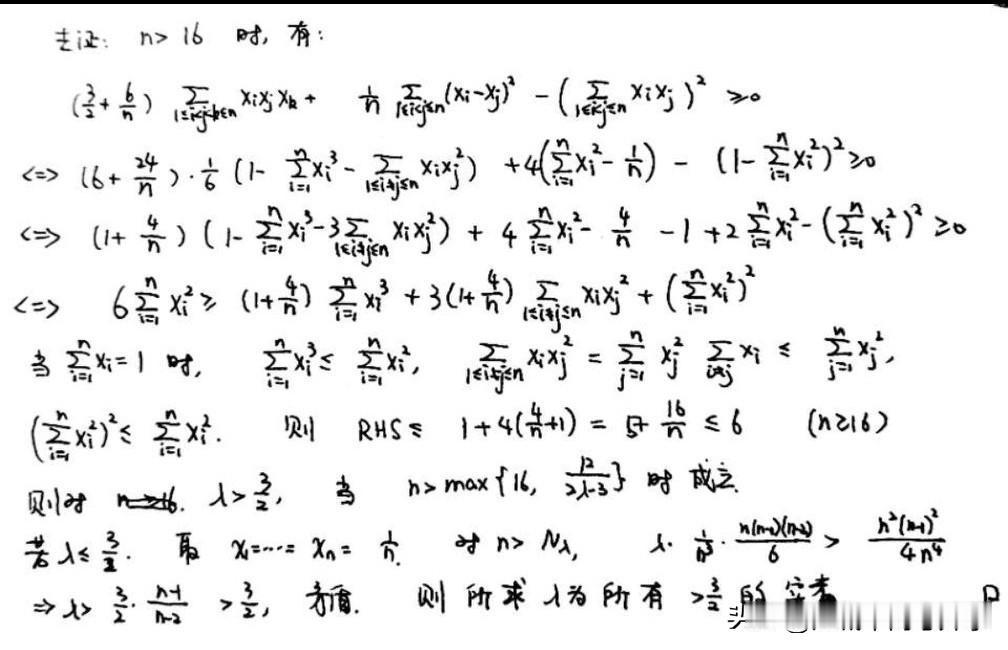 先证: n > 16 时, 有:
(3/2 + 6/n) ∑_{1≤i<j<k≤n} x_i x_j x_k + 1/n ∑_{1≤i<j≤n} (x_i - x_j)^2 - (∑_{1≤i<j≤n} x_i x_j)^2 ≥ 0
<=> (6 + 24/n) · 1/6 (1 - ∑_{i=1}^n x_i^3 - ∑_{1≤i≠j≤n} x_i x_j^2) + 4(∑_{i=1}^n x_i^2 - 1/n) - (1 - ∑_{i=1}^n x_i^2)^2 ≥ 0
<=> (1 + 4/n) (1 - ∑_{i=1}^n x_i^3 - 3∑_{1≤i≠j≤n} x_i x_j^2) + 4 ∑_{i=1}^n x_i^2 - 4/n - 1 + 2 ∑_{i=1}^n x_i^2 - (∑_{i=1}^n x_i^2)^2 ≥ 0
<=> 6 ∑_{i=1}^n x_i^2 ≥ (1 + 4/n) ∑_{i=1}^n x_i^3 + 3(1 + 4/n) ∑_{1≤i≠j≤n} x_i x_j^2 + (∑_{i=1}^n x_i^2)^2
当 ∑_{i=1}^n x_i = 1 时, ∑_{i=1}^n x_i^3 ≤ ∑_{i=1}^n x_i^2, ∑_{1≤i≠j≤n} x_i x_j^2 = ∑_{j=1}^n x_j^2 ∑_{i≠j} x_i ≤ ∑_{j=1}^n x_j^2,
(∑_{i=1}^n x_i^2)^2 ≤ ∑_{i=1}^n x_i^2. 则 RHS ≤ 1 + 4(4/n + 1) = 5 + 16/n ≤ 6 (n≥16)
则对 λ > 3/2, 当 n > max{16, 12/(2λ-3)} 时 成立.
若 λ ≤ 3/2. 取 x_1 = ··· = x_n = 1/n. 对 n > N_λ, λ · 1/n^3 · n(n-1)(n-2)/6 > n^2(n-1)^2/4n^4
⇒ λ > 3/2 · (n-1)/(n-2) > 3/2, 矛盾. 则 所求 λ 为 所有 > 3/2 的 实数 □